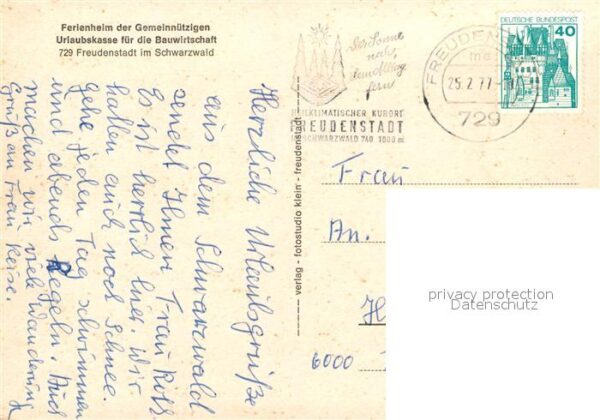 Ferienheim der Gemeinnützigen
Urlaubskasse für die Bauwirtschaft
729 Freudenstadt im Schwarzwald
Herzliche Urlaubsgrüße
aus dem Schwarzwald
sendet Ihnen Frau Roth
Es ist herrlich hier. Wir
hatten auch noch Schnee.
gehe jeden Tag schwimmen
und abends Kegeln. Auch
machen wir viele Wanderung
Gruß an Frau Reise.
verlag - fotostudio klein - freudenstadt
der Sonne
nah,
dem Alltag
fern
HEILKLIMATISCHER KURORT
FREUDENSTADT
SCHWARZWALD 740 1000 m
FREUDEN
25.2.77
729
DEUTSCHE BUNDESPOST
40
Frau
An.
H
6000
privacy protection
Datenschutz